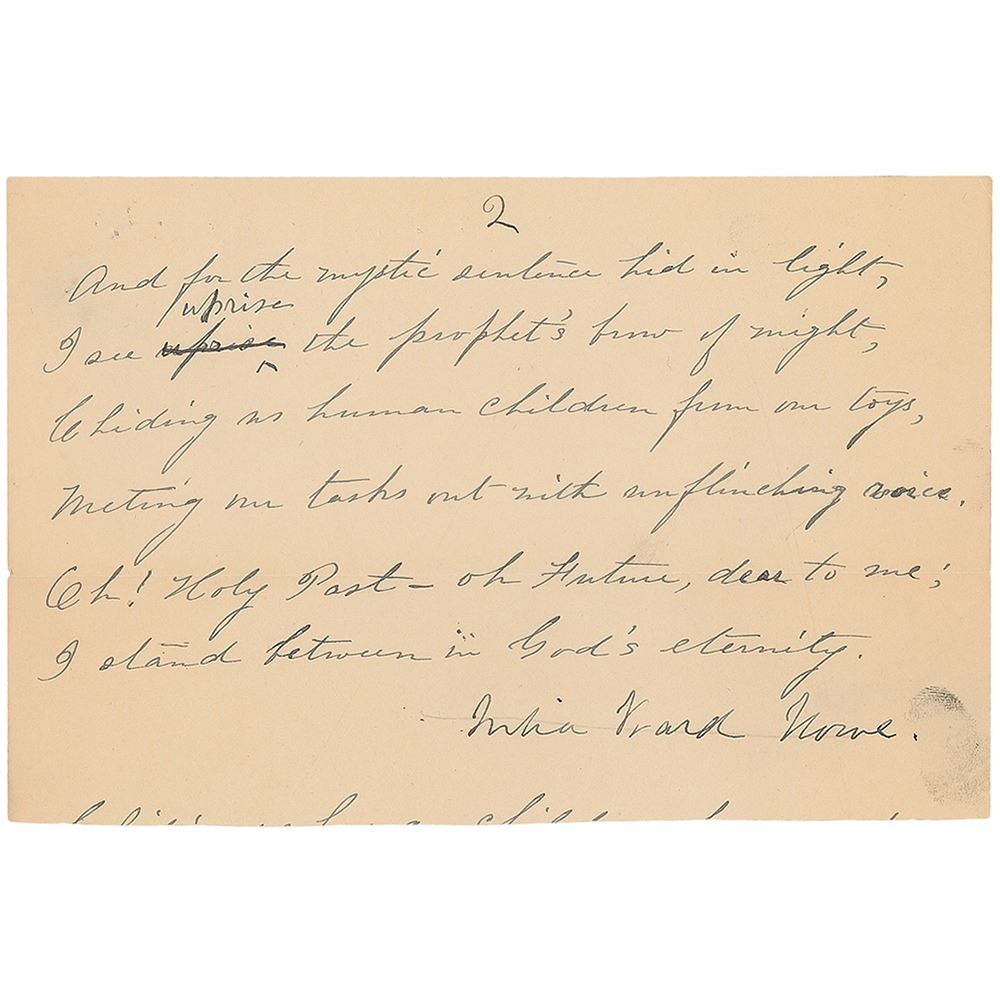 2
And for the mystic sentence hid in light,
uprise
I see uprise the prophet's brow of might,
Chiding us human children from our toys,
Meting our tasks out with unflinching voice.
Oh! Holy Past — oh Future, dear to me;
I stand between in God's eternity.
Julia Ward Howe.